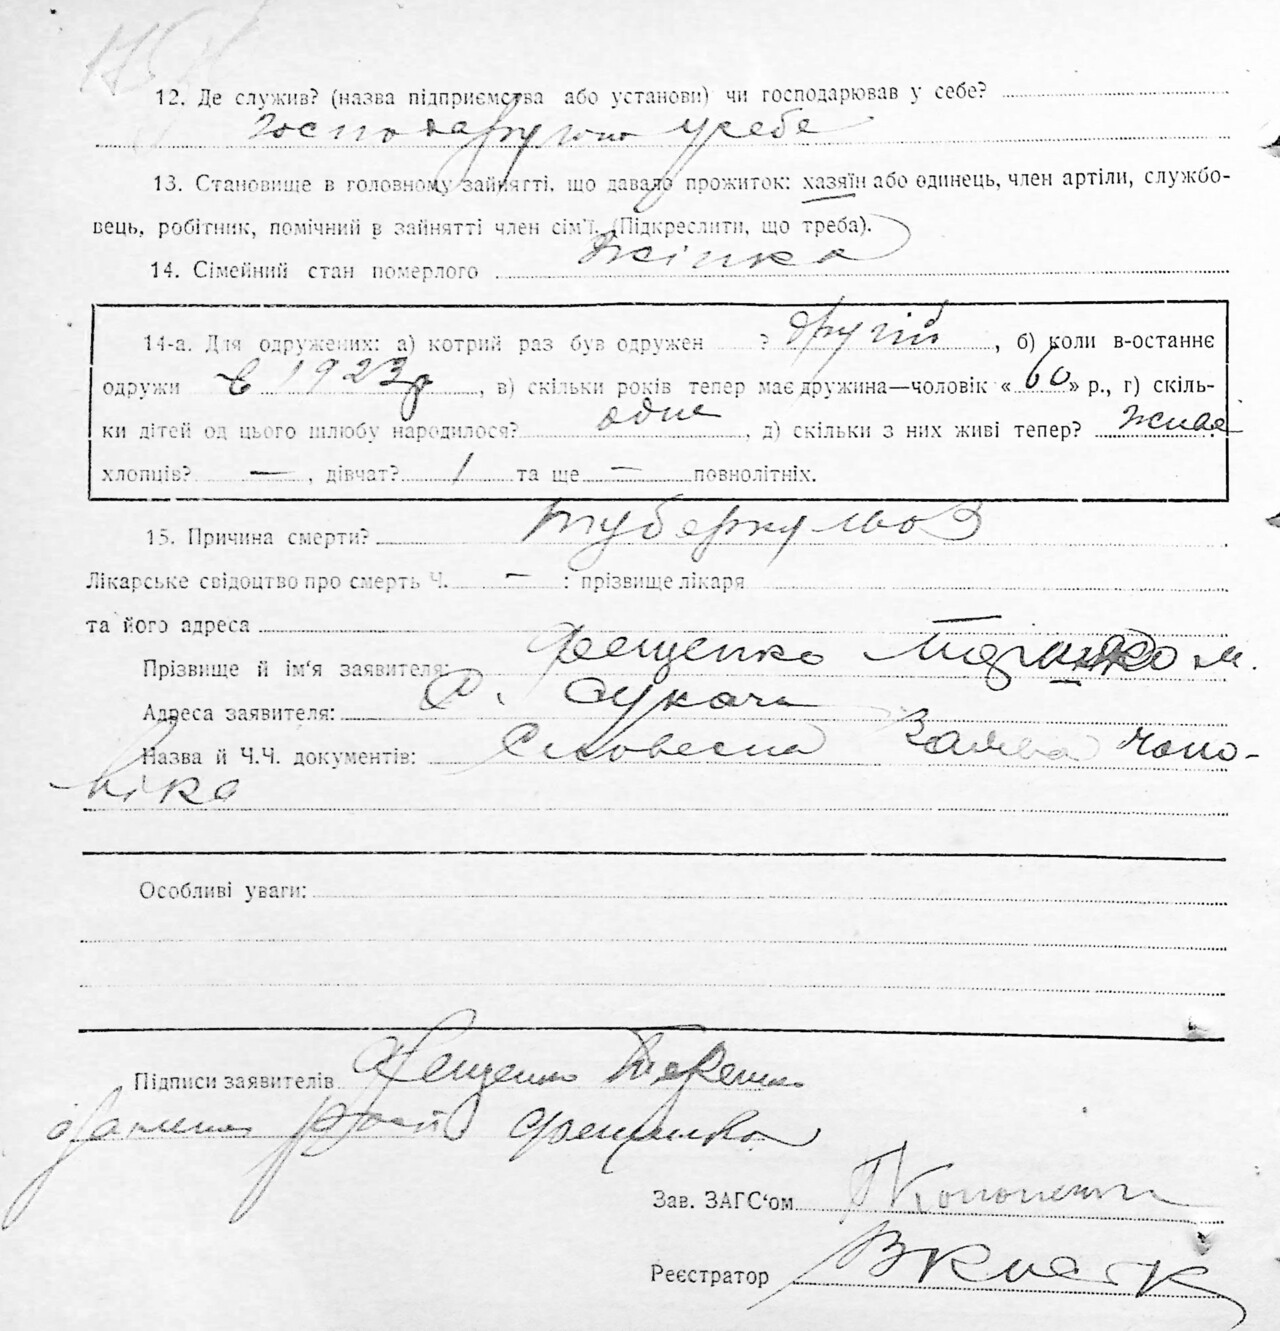 12. Де служив? (назва підприємства або установи) чи господарював у себе?
Господарую у себе
13. Становище в головному зайнятті, що давало прожиток: хазяїн або одинець, член артіли, службо-
вець, робітник, помічний в зайнятті член сім'ї. (Підкреслити, що треба).
14. Сімейний стан померлого Жінка
14-а. Для одружених: а) котрий раз був одружен ? другій, б) коли в-останнє
одружи в 1923 р, в) скільки років тепер має дружина—чоловік «60» р., г) скіль-
ки дітей од цього шлюбу народилося? одне, д) скільки з них живі тепер? живе
хлопців? —, дівчат? 1 та ще — повнолітніх.
15. Причина смерти? туберкульоз
Лікарське свідоцтво про смерть Ч. — : прізвище лікаря
та його адреса
Прізвище й ім'я заявителя: Фещенко М.
Адреса заявителя: С. Букачи
Назва й Ч.Ч. документів: Словесна Заява Чоло-
віка
Особливі уваги:
Підписи заявителів Фещенко Терешко
Фещенко
Зав. ЗАГС'ом Кононенко
Реєстратор